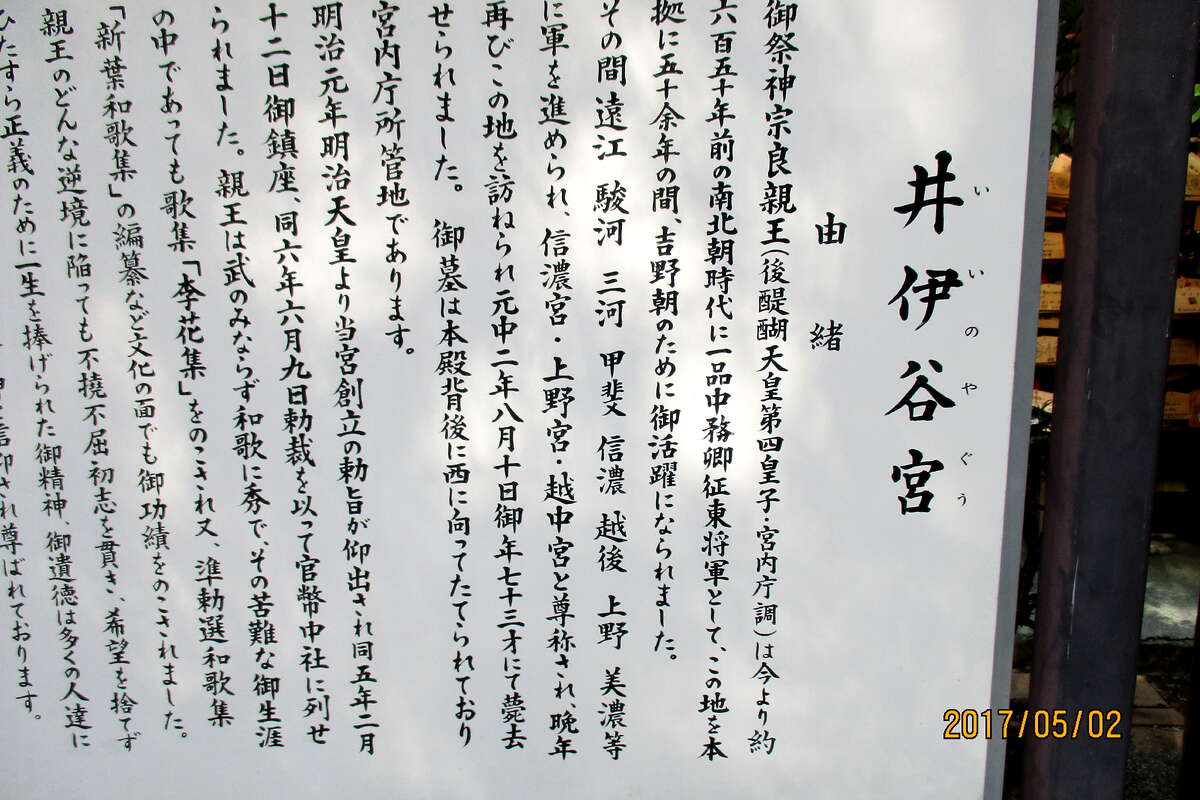 井伊谷宮
いいのやぐう
由緒
御祭神宗良親王(後醍醐天皇第四皇子・宮内庁調)は今より約
六百五十年前の南北朝時代に一品中務卿征東将軍として、この地を本
拠に五十余年の間、吉野朝のために御活躍になられました。
その間遠江 駿河 三河 甲斐 信濃 越後 上野 美濃等
に軍を進められ、信濃宮・上野宮・越中宮と尊称され、晩年
再びこの地を訪ねられ元中二年八月十日御年七十三才にて薨去
せられました。 御墓は本殿背後に西に向ってたてられており
宮内庁所管地であります。
明治元年明治天皇より当宮創立の勅旨が仰出され同五年二月
十二日御鎮座、同六年六月九日勅裁を以って官幣中社に列せ
られました。親王は武のみならず和歌に秀で、その苦難な御生涯
の中であっても歌集「李花集」をのこされ又、準勅選和歌集
「新葉和歌集」の編纂など文化の面でも御功績をのこされました。
親王のどんな逆境に陥っても不撓不屈初志を貫き、希望を捨てず
ひたすら正義のために一生を捧げられた御精神、御遺徳は多くの人達に
信仰され尊ばれております。
2017/05/02